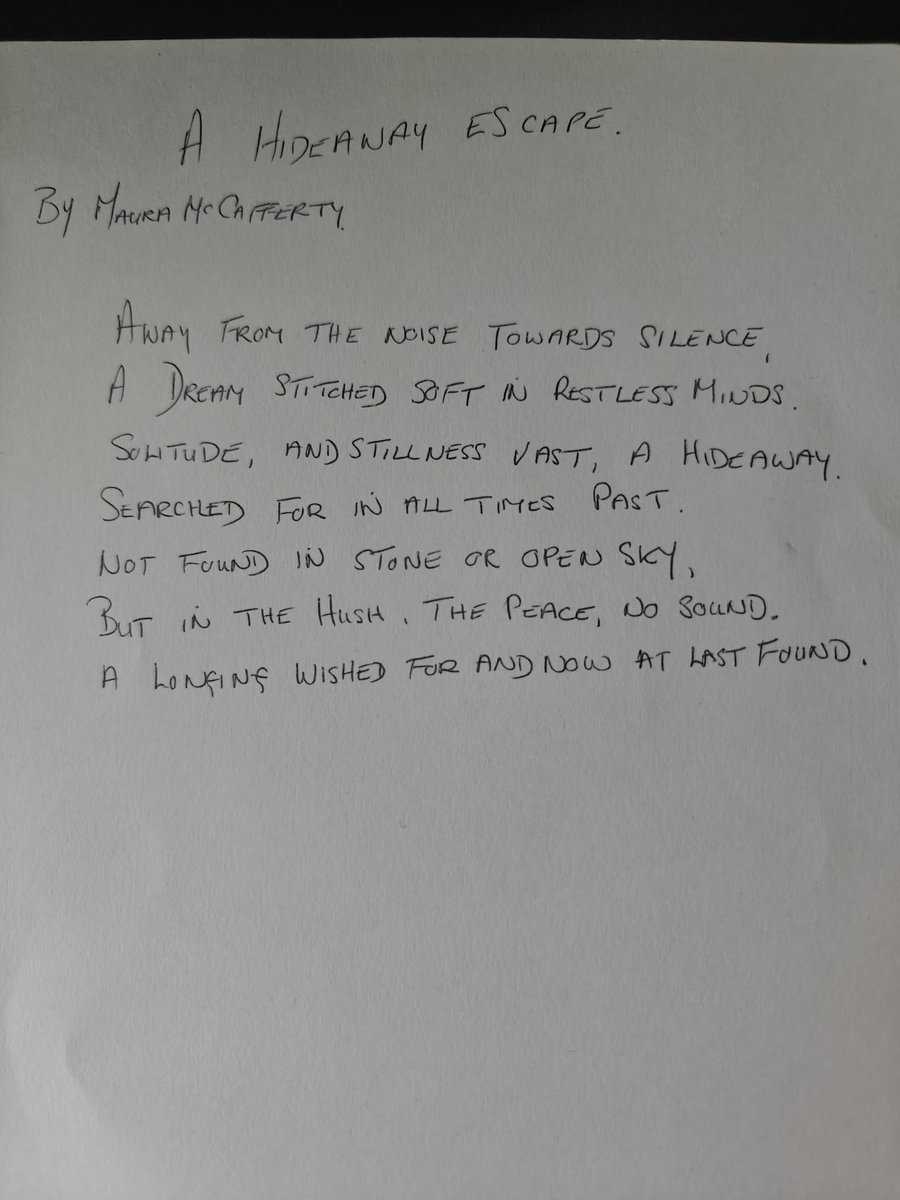 A HIDEAWAY ESCAPE.
By MAURA McCAFFERTY.
AWAY FROM THE NOISE TOWARDS SILENCE,
A DREAM STITCHED SOFT IN RESTLESS MINDS.
SOLITUDE, AND STILLNESS VAST, A HIDEAWAY.
SEARCHED FOR IN ALL TIMES PAST.
NOT FOUND IN STONE OR OPEN SKY,
BUT IN THE HUSH. THE PEACE, NO SOUND.
A LONGING WISHED FOR AND NOW AT LAST FOUND.